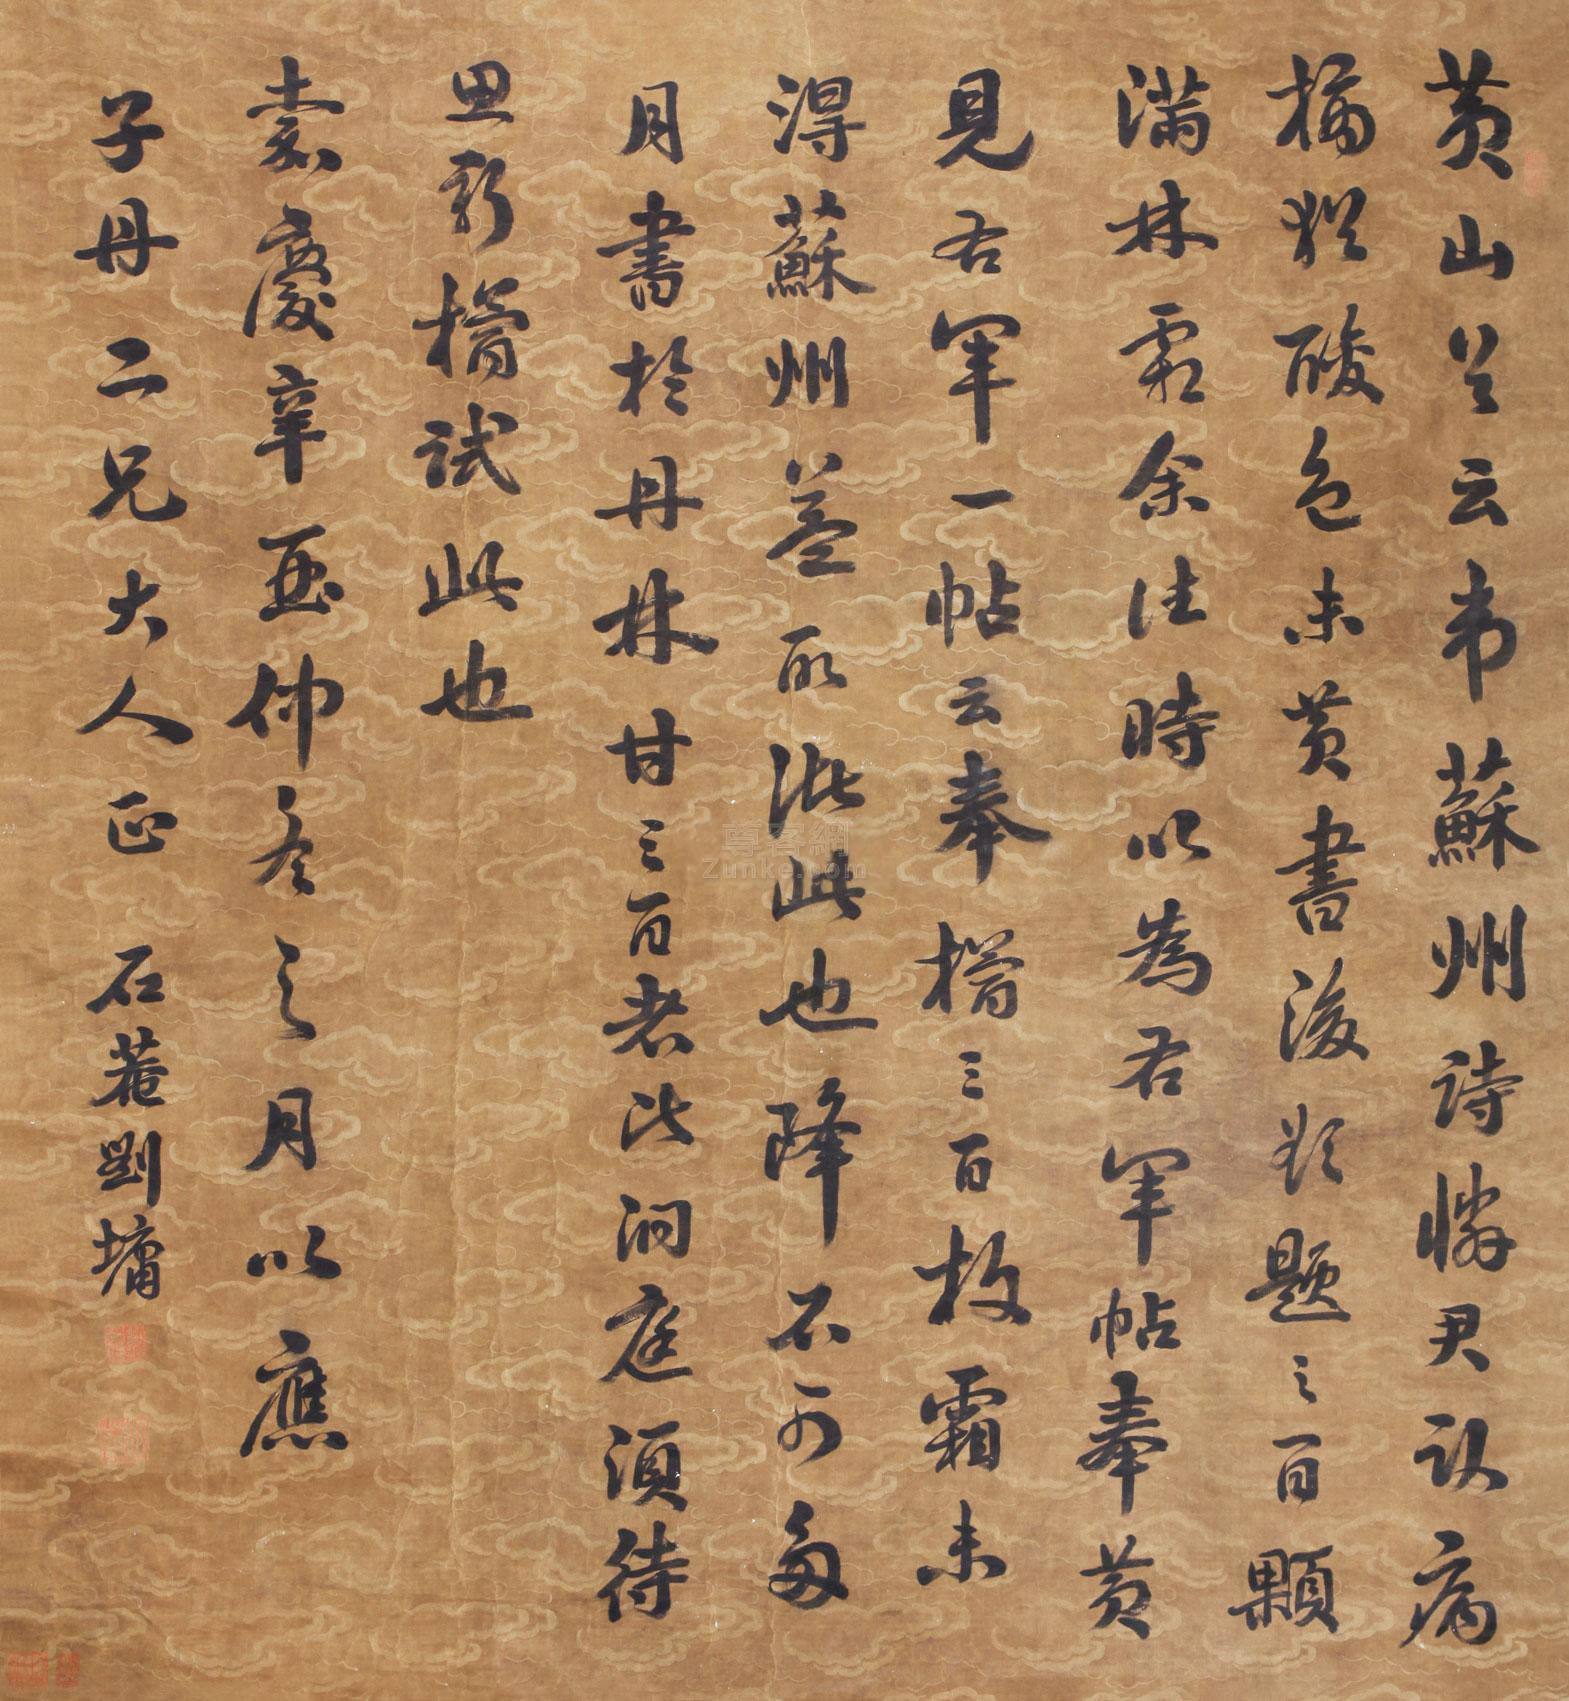 黄山公云韦蘇州詩憐君卧病
橘猶酸色未黄書後欲題三百顆
滿林霜余往時以為右軍帖奉黄
見右軍一帖云奉橘三百枚霜未
得蘇州盖取此也降不可多
月書於丹林甘三百老此洞庭須待
思新橘試此也
嘉慶辛酉仲冬之月以應
子丹二兄大人正 石菴劉墉
尊客網
Zunke.com